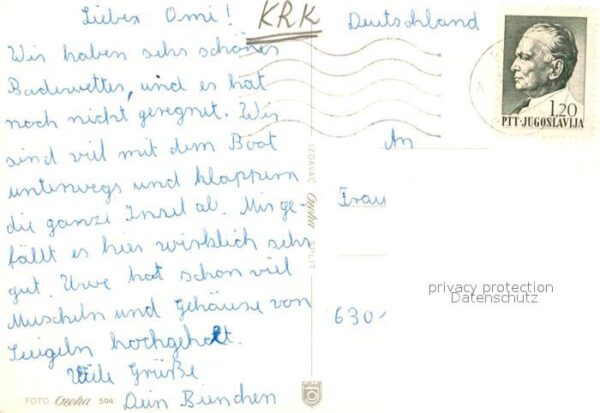 Liebex Omi!
KRK
Deutschland
Wir haben sehr schönes
Badewetter, und es hat
noch nicht geregnet. Wir
sind viel mit dem Boot
unterwegs und klappern
die ganze Insel ab. Mir ge-
fällt es hier wirklich sehr
gut. Uwe hat schon viel
Muscheln und Gehäuse von
Seeigeln hochgeholt.
Viele Grüße
Dein Bienchen
An
Frau
630
1.20
PTT·JUGOSLAVIJA
privacy protection
Datenschutz
IZDAVAČ Ozeha SPLIT
FOTO Ozeha 504